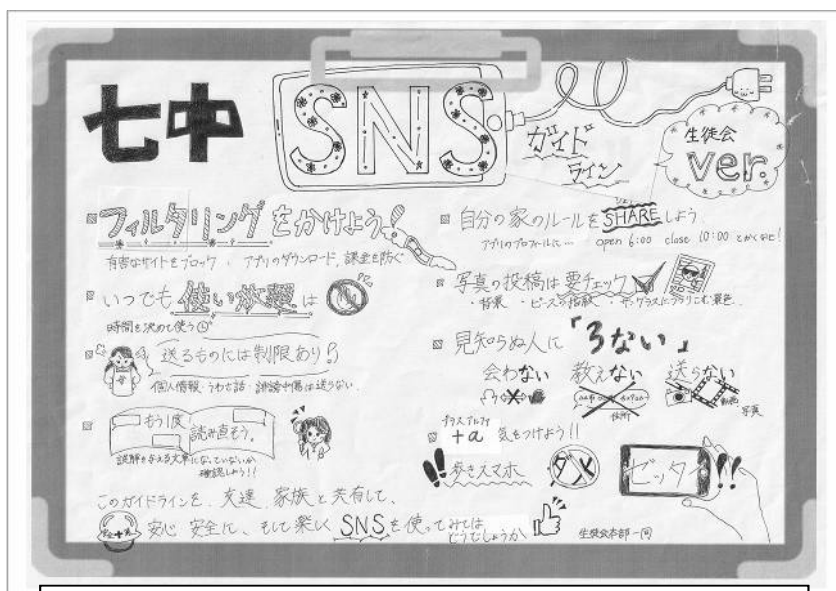 七中 SNS
ガイド
ライン
生徒会
ver.
フィルタリングをかけよう
有害なサイトをブロック、アプリのダウンロード、課金を防ぐ
いつでも使い放題は
時間を決めて使う
送るものには制限あり
個人情報・うわさ話・誹謗中傷は送らない
もう1度
読み直そう。
誤解を与える文章になっていないか
確認しよう!!
自分の家のルールをSHAREしよう
アプリのプロフィールに… open 6:00 close 10:00 とかくなど!
写真の投稿は要チェック
・背景 ・ピースの指紋 ・サングラスにうつりこむ景色
見知らぬ人に「3ない」
会わない 教えない 送らない
住所
動画
写真
プラスアルファ
+α 気をつけよう!!
!!歩きスマホ ダメ ゼッタイ!!
このガイドラインを、友達、家族と共有して、
安心 安全に、そして楽しくSNSを使ってみては
どうでしょうか
生徒会本部一同